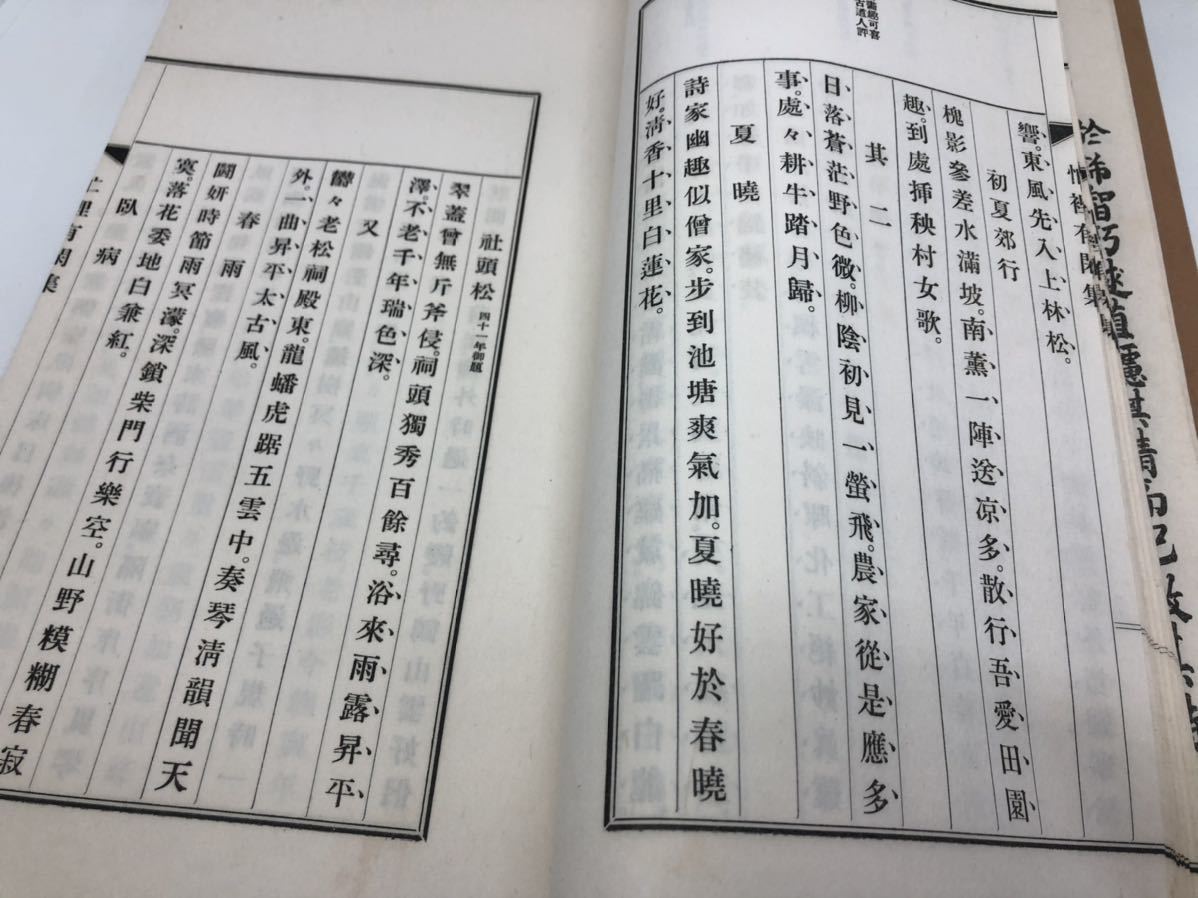 響。東風先入上林松。
初夏郊行
槐影參差水滿坡。南薰一陣送凉多。散行吾愛田園
趣。到處揷秧村女歌。
其二
日落蒼茫野色微。柳陰初見一螢飛。農家從是應多
事。處々耕牛踏月歸。
夏曉
詩家幽趣似僧家。步到池塘爽氣加。夏曉好於春曉
好。淸香十里白蓮花。
畫趣可喜
古道人評
社頭松 四十一年御題
翠蓋曾無斤斧侵。祠頭獨秀百餘尋。浴來雨露昇平
澤。不老千年瑞色深。
又
欝々老松祠殿東。龍蟠虎踞五雲中。奏琴淸韻聞天
外。一曲昇平太古風。
春雨
鬪姸時節雨冥濛。深鎖柴門行樂空。山野糢糊春寂
寞。落花委地白兼紅。
臥病
忙裡有閑集